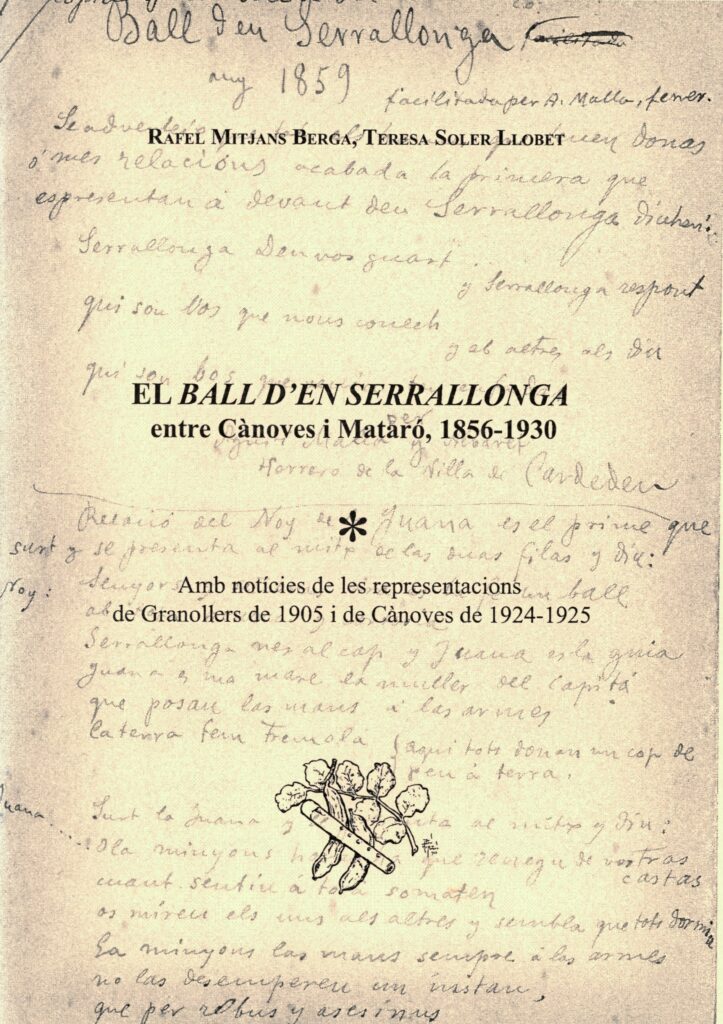 Ball den Serrallonga
any 1859
facilitada per A. Malla, ferrer.
RAFEL MITJANS BERGA, TERESA SOLER LLOBET
donas
ó mes relacións acabada la primera que
espresentan á devant den Serrallonga diuhen:
Serrallonga Deu vos guart
y Serrallonga respont
qui sou vos que nous conech
y ab altres als diu
qui son
EL BALL D'EN SERRALLONGA
entre Cànoves i Mataró, 1856-1930
per
Herrero de la Villa de Cardedeu
*
Relació del Noy de Juana es el prime que
surt y se presenta al mitx de las duas filas y diu:
Noy: Senyors un ball
Amb notícies de les representacions
de Granollers de 1905 i de Cànoves de 1924-1925
Serrallonga nes al cap y Juana es la guia
Juana es ma mare la muller del Capitá
que posau las mans á las armes
la terra fem tremolá (aqui tots donan un cop de
peu á terra.
Juana
Surt la Juana y al mitx y diu:
Ola minyons que renegu de vostras
castas
cuant sentiu á somaten
os mireu els uns als altres y sembla que tots dormiu
Ea minyons las mans sempre á las armes
no las desempereu un instan,
que per robus y asesinus